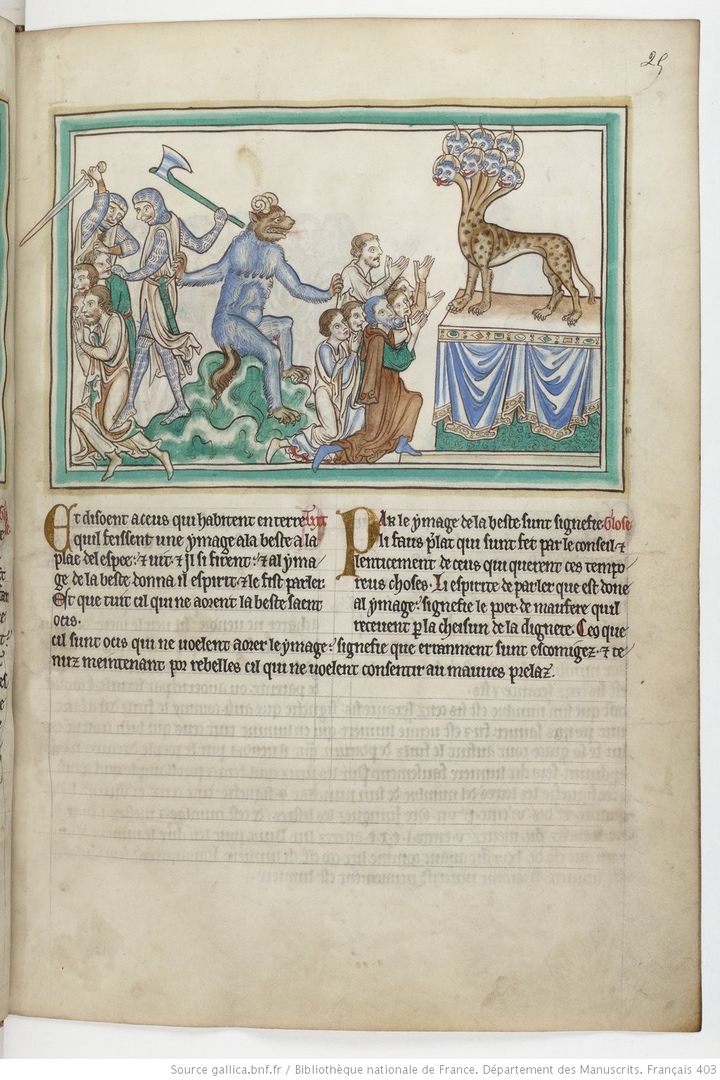 25
Et disoent a ceus qui habitent en terre
qu il feissent une ymage a la beste a la
plaie del espee ⁊ uit. ⁊ il si firent. ⁊ al yma
ge de la beste donna il espirit ⁊ le fist parler.
Et que tuit cil qui ne aorent la beste saent
ocis.
Par le ymage de la beste sunt signefie Glose
li faus plat qui sunt fet par le conseil ⁊
lenticement de ceus qui querent ces tempo
reus choses. Li espirite de parler que est done
al ymage. signefie le poer de maufere qu il
receuent p la cheisun de la dignete. Ceo que
cil sunt ocis qui ne uoelent aorer le ymage. signefie que erranment sunt escomigez. ⁊ te
nuz meintenant por rebelles cil qui ne uoelent consentir au mauues prelaz.
Source gallica.bnf.fr / Bibliothèque nationale de France. Département des Manuscrits. Français 403